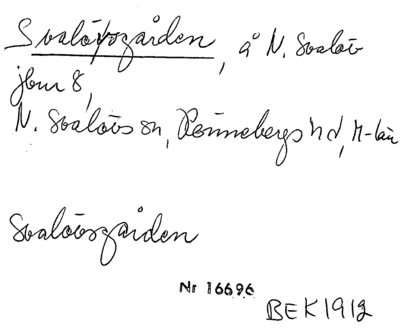 Svalövsgården, å N. Svalöv
jbm 8,
N. Svalövs sn, Rönnebergs hd, M-län
Svalövsgården
Nr 16696
BEK1912